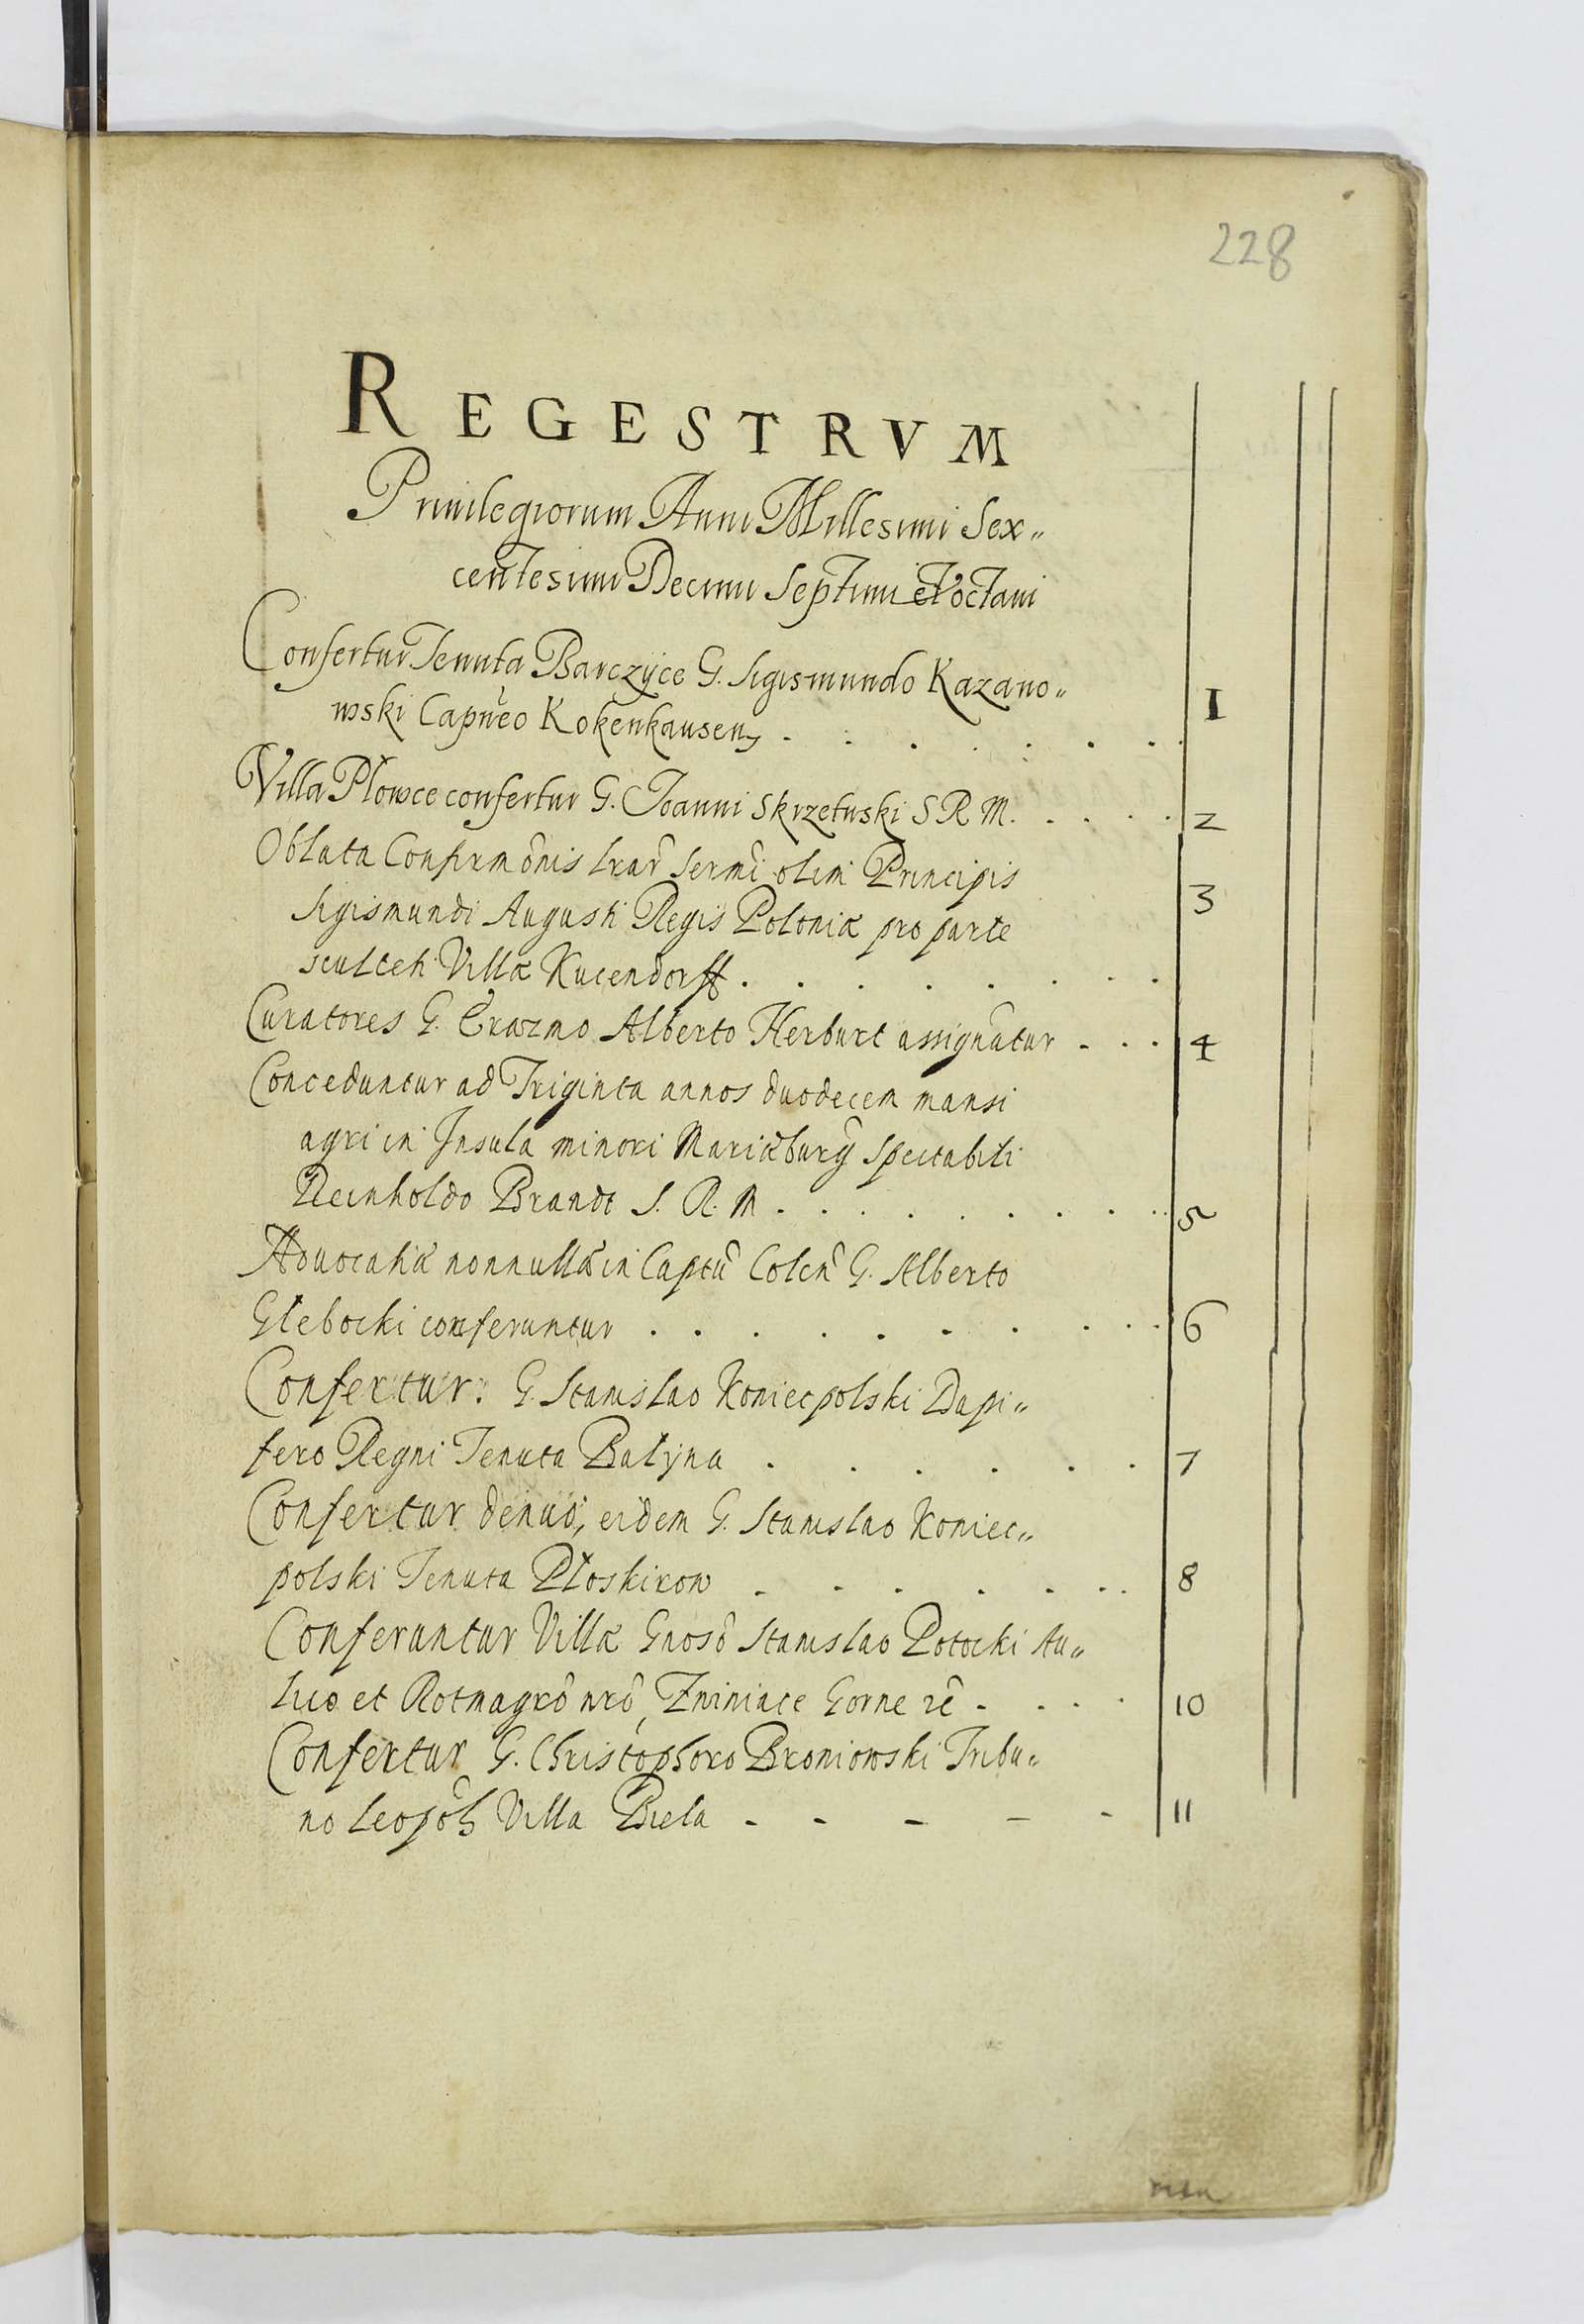 228
REGESTRVM
Priuilegiorum Anni Millesimi Sex„
centesimi Decimi Septimi et octaui
Confertur Tenuta Barczyce G. Sigismundo Kazano„
wski Capneo Kokenhausens . . . . . . . 1
Villa Płowce confertur G. Joanni Skrzetuski S R M. . . . . 2
Oblata Confirmõnis lrar̃ Sermĩ olim Principis 3
Sigismundi Augusti Regis Poloniæ pro parte
sculteti Villæ Kucendorff . . . . . . . .
Curatores G. Erazmo Alberto Herburt assignãtur . . . 4
Conceduntur ad Triginta annos duodecem mansi
agri in Insula minori Mariæburg̃ Spectabili
Reinholdo Brandt S. R. M . . . . . . . . . 5
Aduocatiæ nonnullæ in Captũ Colen̂ G. Alberto
Głebocki conferuntur . . . . . . . . . 6
Confertur. G. Stanislao Koniecpolski Dapi„
fero Regni Tenuta Bałyna . . . . . . 7
Confertur denuò, eidem G. Stanislao Koniec„
polski Tenuta Płoskirow . . . . . . . 8
Conferuntur Villæ Gnosõ Stanislao Potocki Au„
lico et Rotmagrõ nrõ, Zniniace Gorne rẽ . . . . 10
Confertur G. Christophoro Broniowski Tribu„
no Leopol̃ Villa Biela - - - - - 11